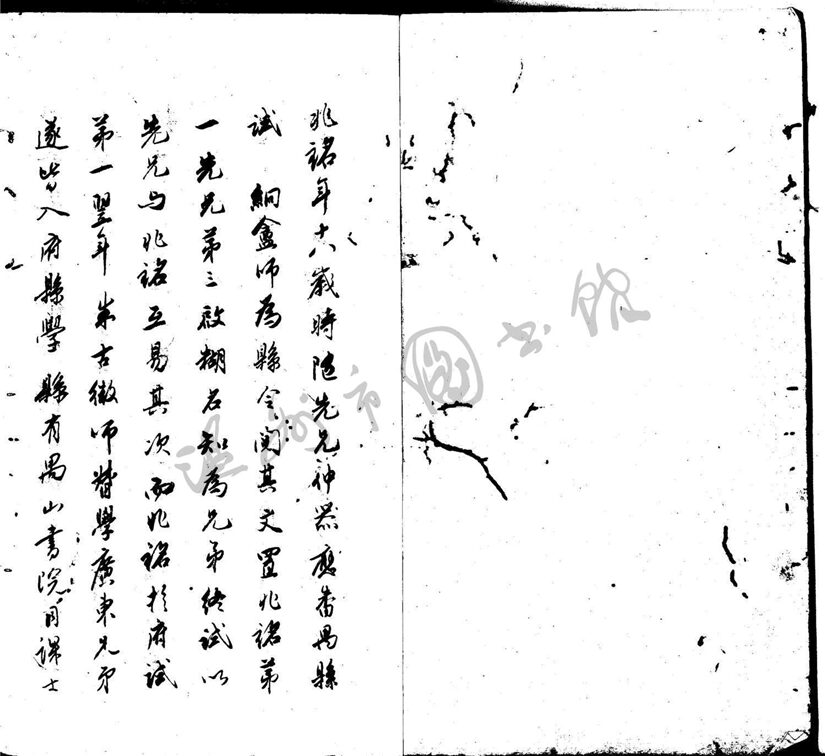 兆銘年十八歲時隨先兄仲器應番禺縣
試 絅盦師為縣令閱其文置兆銘第
一先兄第三啟糊名知為兄弟終試以
先兄與兆銘互易其次而兆銘於府試
第一翌年 朱古微師督學廣東兄弟
遂皆入府縣學縣有禺山書院月課士
溫州市圖書館